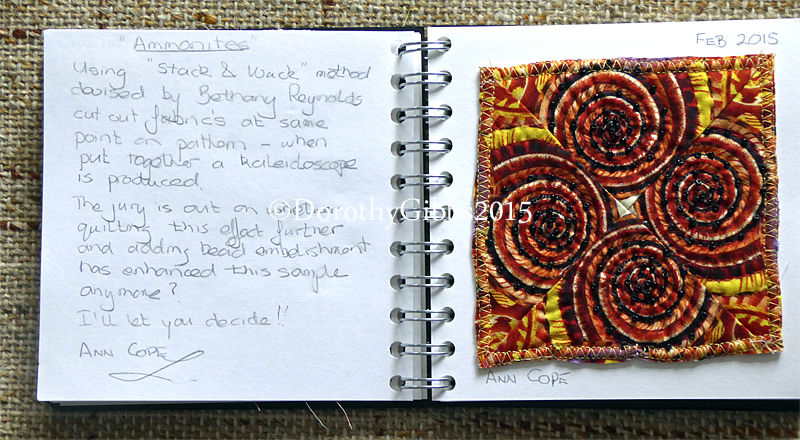 "Ammonites"
Using "Stack & Wack" method
devised by Bethany Reynolds
cut out fabrics at same
point on pattern - when
put together a kaleidoscope
is produced.
The jury is out on whether
quilting this effect further
and adding bead embelishment
has enhanced this sample
anymore?
I'll let you decide!!
ANN COPE
FEB 2015
©DorothyGibbs2015
ANN COPE